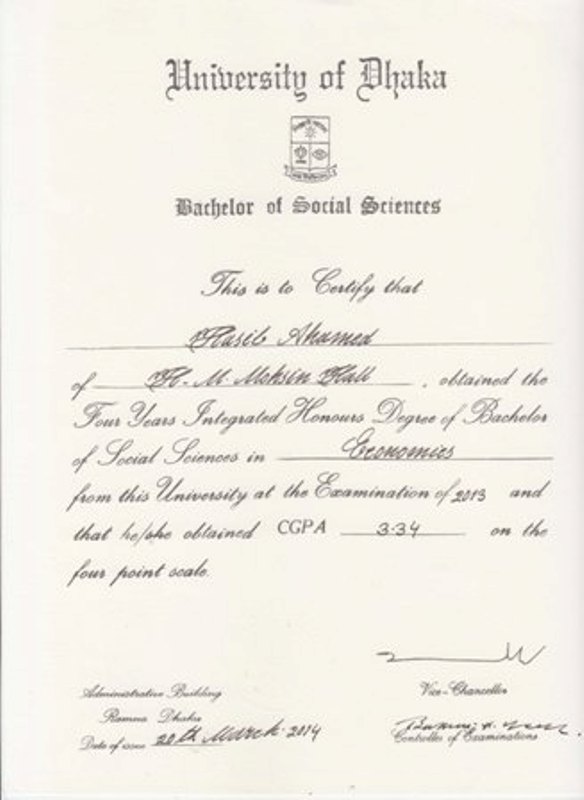 University of Dhaka
Bachelor of Social Sciences
This is to Certify that
Hasib Ahamed
of H. M. Mohsin Hall, obtained the
Four Years Integrated Honours Degree of Bachelor
of Social Sciences in Economics
from this University at the Examination of 2013 and
that he/she obtained CGPA 3.34 on the
four point scale.
Administrative Building
Ramna Dhaka
Date of issue 20th March 2014
Vice-Chancellor
Controller of Examinations